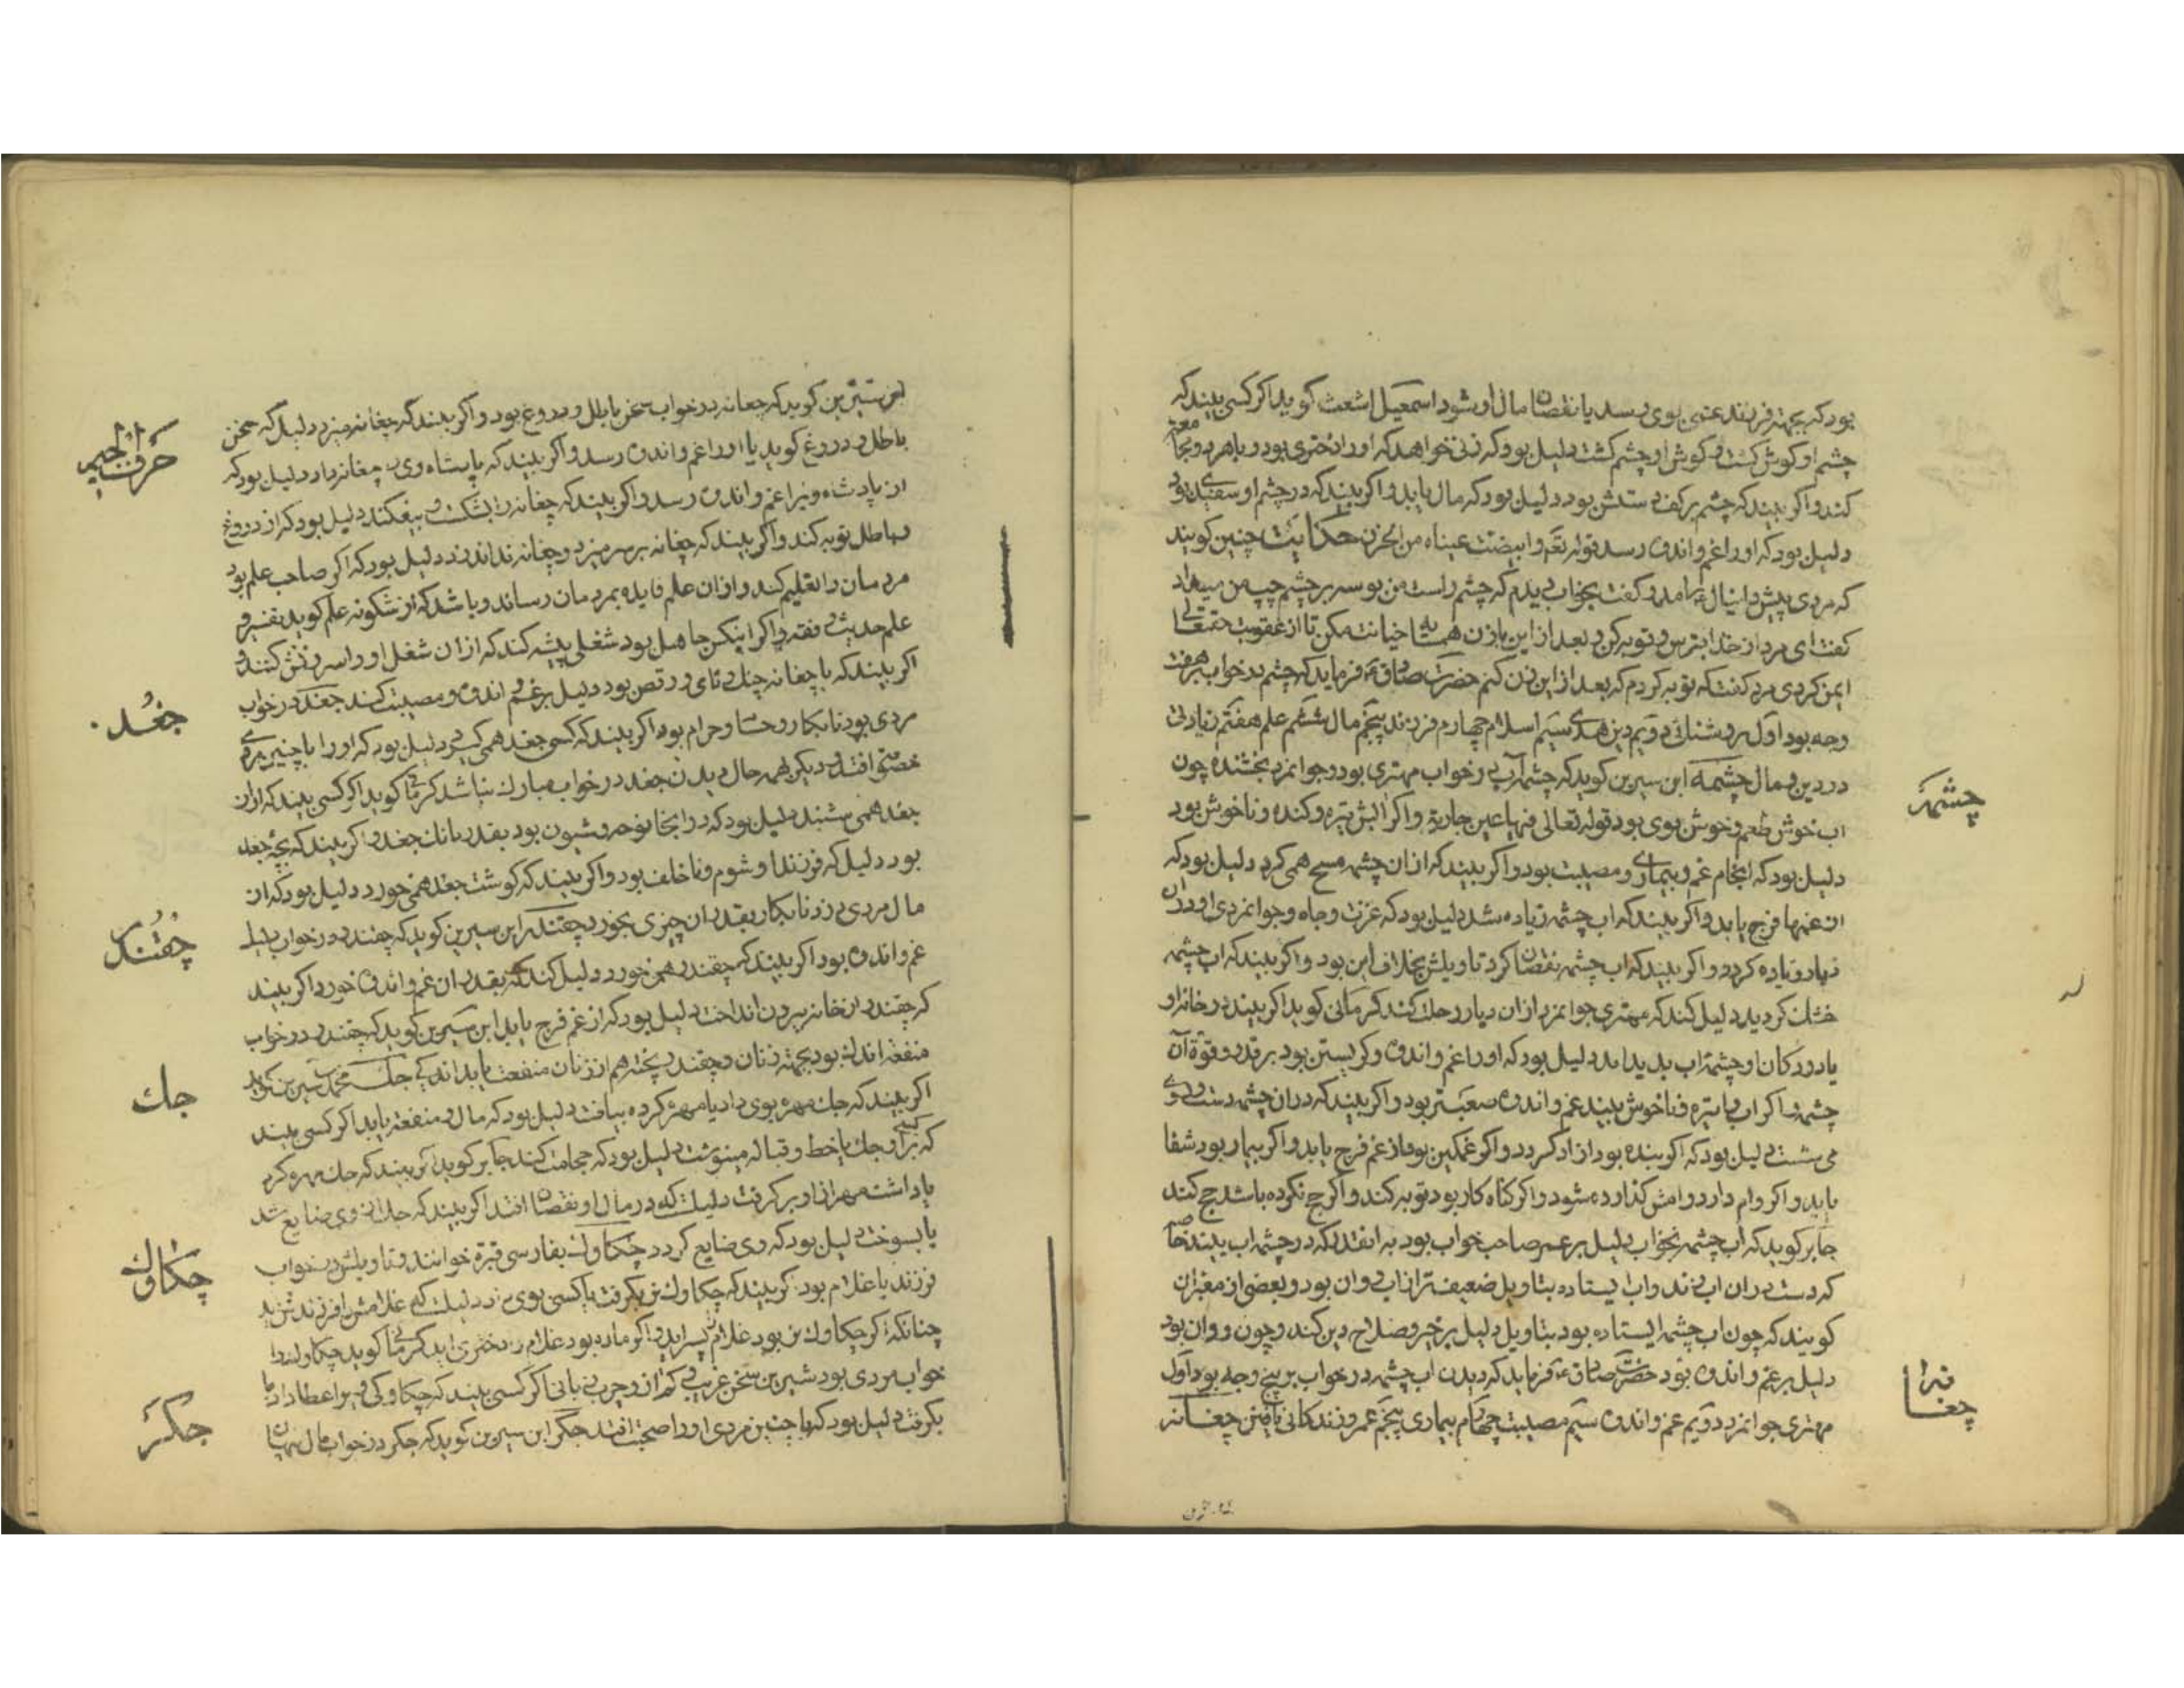 بود که بجهة فرزند غمی بوی رسد یا نقصان مال او شود اسمعیل اشعث کوید اکر کسی بیند که
چشم او کوش کشت و کوش او چشم کشت دلیل بود که زنی خواهد که او را دختری بود و با هر دو
کند و اکر بیند که چشم بر کف دستش بود دلیل بود که مال یابد و اکر بیند که در چشم او سفیدی بود
دلیل بود که او را غم و اندوه رسد قوله تعم وابیضت عیناه من الحزن حکایت چنین کویند
که مردی پیش دانیال ع امد و کفت بخواب دیدم که چشم راست من بوسه بر چشم چپ من میداد
کفت ای مرد از خدا بترس و توبه کن و بعد از این با زن همسایه خیانت مکن تا از عقوبت حقتعالی
ایمن کردی مرد کفت که توبه کردم که بعد از این نکنم حضرت صادق ع فرماید که چشم در خواب بر هفت
وجه بود اول روشنائی دویم دین هدی سیم اسلام چهارم فرزند پنجم مال ششم علم هفتم زیادتی
در دین و مال چشمه ابن سیرین کوید که چشمه آب در خواب مهتری بود و جوانمرد بخشنده چون
اب خوش طعم و خوش بوی بود قوله تعالی فیها عین جاریة و اکر ابش تیره و کنده و ناخوش بود
دلیل بود که انجام غم و بیماری و مصیبت بود و اکر بیند که از ان چشمه مسح همی کرد دلیل بود که
از غمها فرج یابد و اکر بیند که اب چشمه زیاده شد دلیل بود که عزت و جاه و جوانمردی او در ان
دیار زیاده کردد و اکر بیند که اب چشمه نقصان کرد تاویلش بخلاف این بود و اکر بیند که اب چشمه
خشک کردید دلیل کند که مهتری جوانمرد از ان دیار رحلت کند کرمانی کوید اکر بیند در خانه او
یا در دکان او چشمه اب پدید امد دلیل بود که او را غم و اندوه و کریستن بود بر قدر و قوة آن
چشمه و اکر اب را تیره و ناخوش بیند غم و اندوه صعبتر بود و اکر بیند که در ان چشمه دست و روی
می شست دلیل بود که اکر بنده بود ازاد کردد و اکر غمکین بود از غم فرج یابد و اکر بیمار بود شفا
یابد و اکر وام دارد وامش کذارده شود و اکر کناه کار بود توبه کند و اکر حج نکرده باشد حج کند
جابر کوید که آب چشمه بخواب دلیل بر عمر صاحب خواب بود به انقدر که در چشمه اب بیند خاصه
که دست در ان اب زند و اب ایستاده بتاویل ضعیف تر از اب روان بود و بعضی از معبران
کویند که چون اب چشمه ایستاده بود بتاویل دلیل بر خیر و صلاح دین کند و چون روان بود
دلیل بر غم و اندوه بود حضرت صادق ع فرماید که دیدن اب چشمه در خواب بر پنج وجه بود اول
مهتری جوانمرد دویم غم و اندوه سیم مصیبت چهارم بیماری پنجم عمر و زندکانی یافتن چغانه
چشمه
چغانه
ابن سیرین کوید که چغانه در خواب سخن باطل و دروغ بود و اکر بیند که چغانه میزد دلیل که سخن
باطل و دروغ کوید یا او را غم و اندوه رسد و اکر بیند که پادشاه وی را چغانه داد دلیل بود که
از پادشاه ویرا غم و اندوه رسد و اکر بیند که چغانه را بشکست و بیفکند دلیل بود که از دروغ
و باطل توبه کند و اکر بیند که چغانه بر سر میزد و چغانه زدن نداند دلیل بود که اکر صاحب علم بود
مردمان را تعلیم کند و از ان علم فایده بمردمان رساند و باشد که از شکونه علم کوید تفسیر و
علم حدیث و فقه و اکر اینکس جاهل بود شغلی پیشه کند که از ان شغل او را سرزنش کنند و
اکر بیند که با چغانه چنک و نای و رقص بود دلیل بر غم و اندوه و مصیبت کند جغد در خواب
مردی بود نابکار و حرام بود اکر بیند که کسی جغد همی کیرد دلیل بود که او را با چنین مردی
خصمی افتد و دیکر همه حال دیدن جغد در خواب مبارک نباشد کرمانی کوید اکر کسی بیند که اواز
جغد همی شنید دلیل بود که در انجا نوحه و شیون بود بقدر بانک جغد و اکر بیند که بچه جغد
بود دلیل که فرزند او شوم و ناخلف بود و اکر بیند که کوشت جغد همی خورد دلیل بود که از
مال مردی دزد نابکار بقدر ان چیزی بخورد چقندر ابن سیرین کوید که چقندر در خواب دلیل
غم و اندوه بود اکر بیند که چقندر همی خورد دلیل کند که بقدر ان غم و اندوه خورد اکر بیند
که چقندر از خانه بیرون انداخت دلیل بود که از غم فرج یابد ابن سیرین کوید که چقندر در خواب
منفعة اندک بود بجهة زنان و چقندر پخته هم از زنان منفعت یابد اندکی چک محمد بن سیرین کوید
اکر بیند که چک مهره بوی داد یا مهره کرده بیافت دلیل بود که مال و منفعة یابد اکر کسی بیند
که برای کسی چک یا خط و قباله مینوشت دلیل بود که حجامت کند جابر کوید اکر بیند که چک مهره کرد
یا داشت مهر از او بر کرفت دلیلست که در مال او نقصان افتد اکر بیند که چک از وی ضایع شد
یا بسوخت دلیل بود که وی ضایع کردد چکاوک بفارسی قبرة خوانند و تاویلش در خواب
فرزند یا غلام بود اکر بیند که چکاوک نر بکرفت یا کسی بوی داد دلیلست که غلامش را فرزند نرینه
چنانکه اکر چکاوک نر بود غلام پسر اید و اکر ماده بود غلام را دختری اید کرمانی کوید چکاوک در
خواب مردی بود شیرین سخن غریب اکر کسی بیند که چکاوکی ویرا عطا داد یا
بکرفت دلیل بود که با چنین مردی او را صحبت افتد جکر ابن سیرین کوید که جکر در خواب مال پنهان
حرف الجیم
جغد
چقندر
جك
چکاوك
جکر